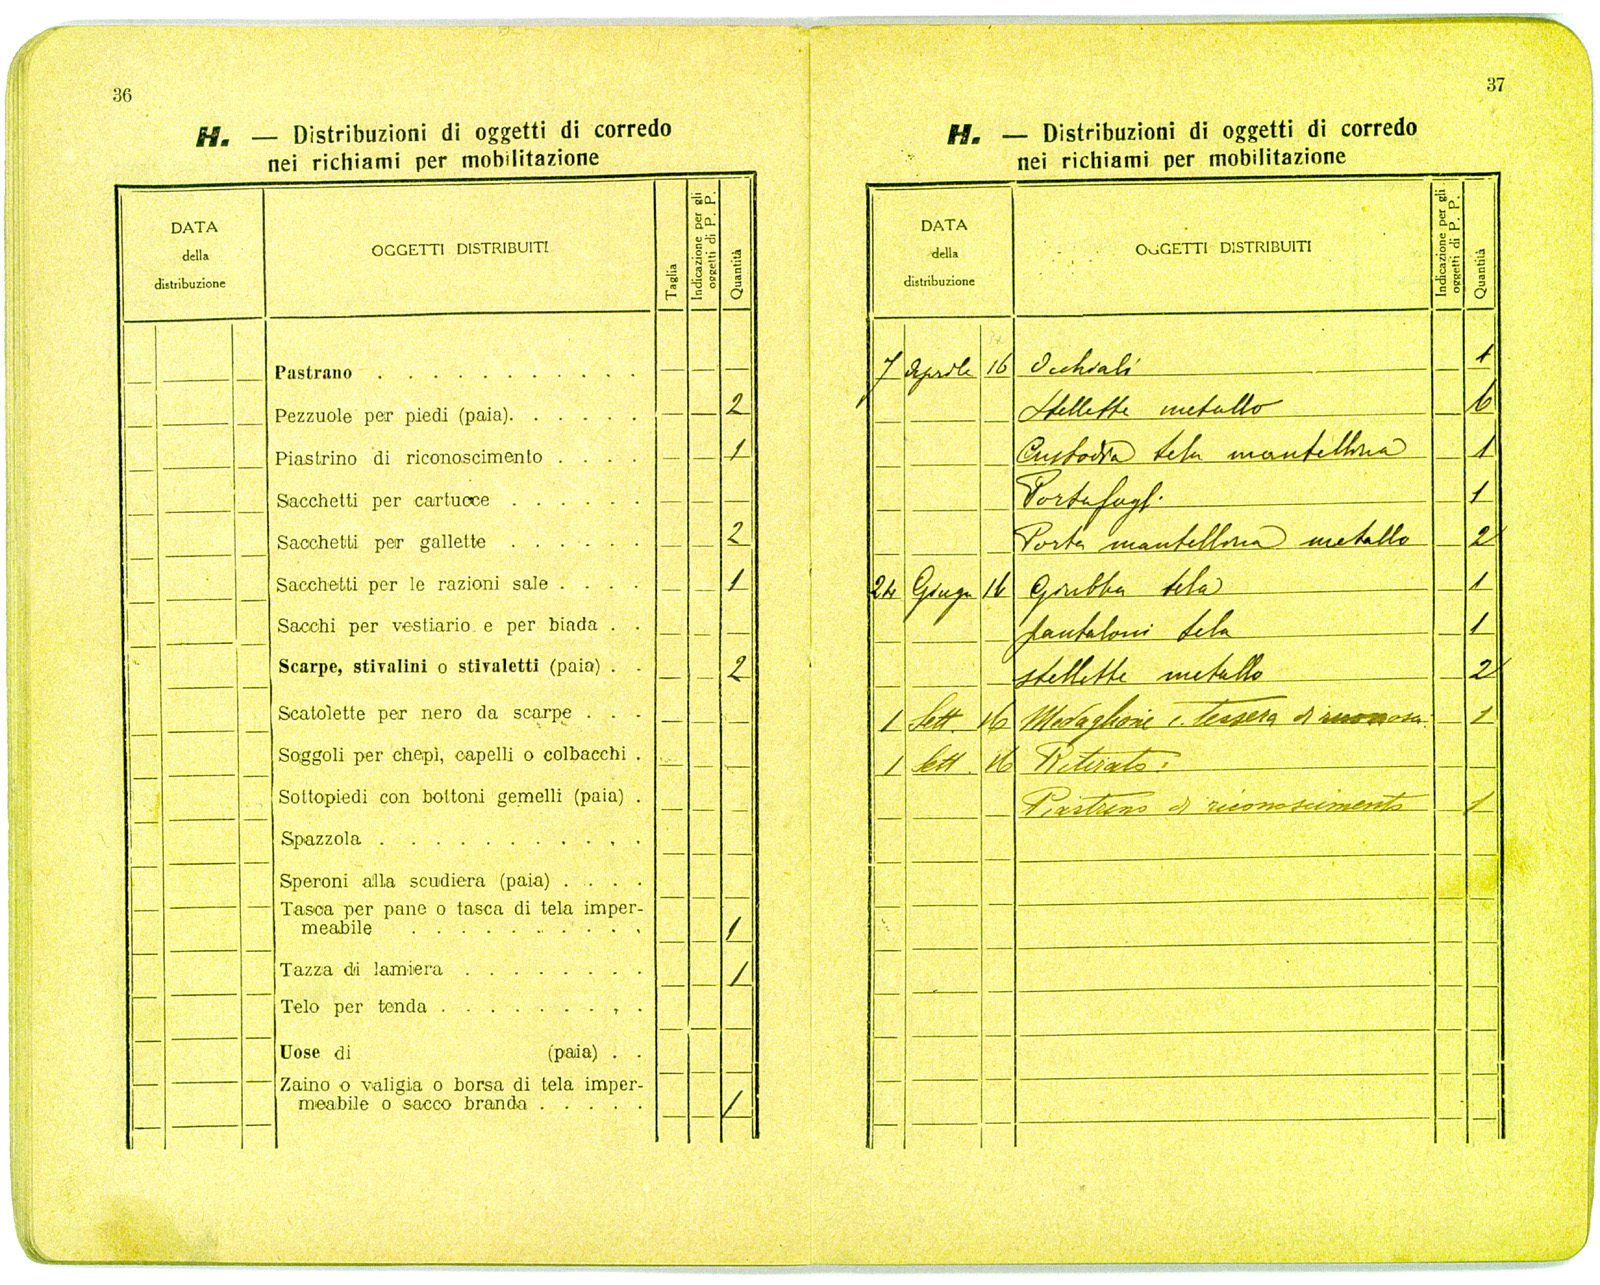 36
H. — Distribuzioni di oggetti di corredo
nei richiami per mobilitazione
DATA
della
distribuzione
OGGETTI DISTRIBUITI
Taglia
Indicazione per gli
oggetti di P. P.
Quantità
Pastrano . . . . . . . . . . .
Pezzuole per piedi (paia). . . . . . 2
Piastrino di riconoscimento . . . . 1
Sacchetti per cartucce . . . . . .
Sacchetti per gallette . . . . . . 2
Sacchetti per le razioni sale . . . . 1
Sacchi per vestiario e per biada . .
Scarpe, stivalini o stivaletti (paia) . . 2
Scatolette per nero da scarpe . . .
Soggoli per chepì, capelli o colbacchi .
Sottopiedi con bottoni gemelli (paia) .
Spazzola . . . . . . . . . . .
Speroni alla scudiera (paia) . . . .
Tasca per pane o tasca di tela imper-
meabile . . . . . . . . . . 1
Tazza di lamiera . . . . . . . . 1
Telo per tenda . . . . . . . . .
Uose di (paia) . .
Zaino o valigia o borsa di tela imper-
meabile o sacco branda . . . . . 1
37
H. — Distribuzioni di oggetti di corredo
nei richiami per mobilitazione
DATA
della
distribuzione
OGGETTI DISTRIBUITI
Indicazione per gli
oggetti di P. P.
Quantità
7 Aprile 16 Occhiali 1
Stellette metallo 6
Custodia tela mantellina 1
Portafogl. 1
Porta mantellina metallo 2
24 Giugn 16 Giubba tela 1
pantaloni tela 1
stellette metallo 2
1 Sett. 16 Medaglione e Tessera di 1
1 Sett. 16 Ritirato:
Piastrino di riconoscimento 1